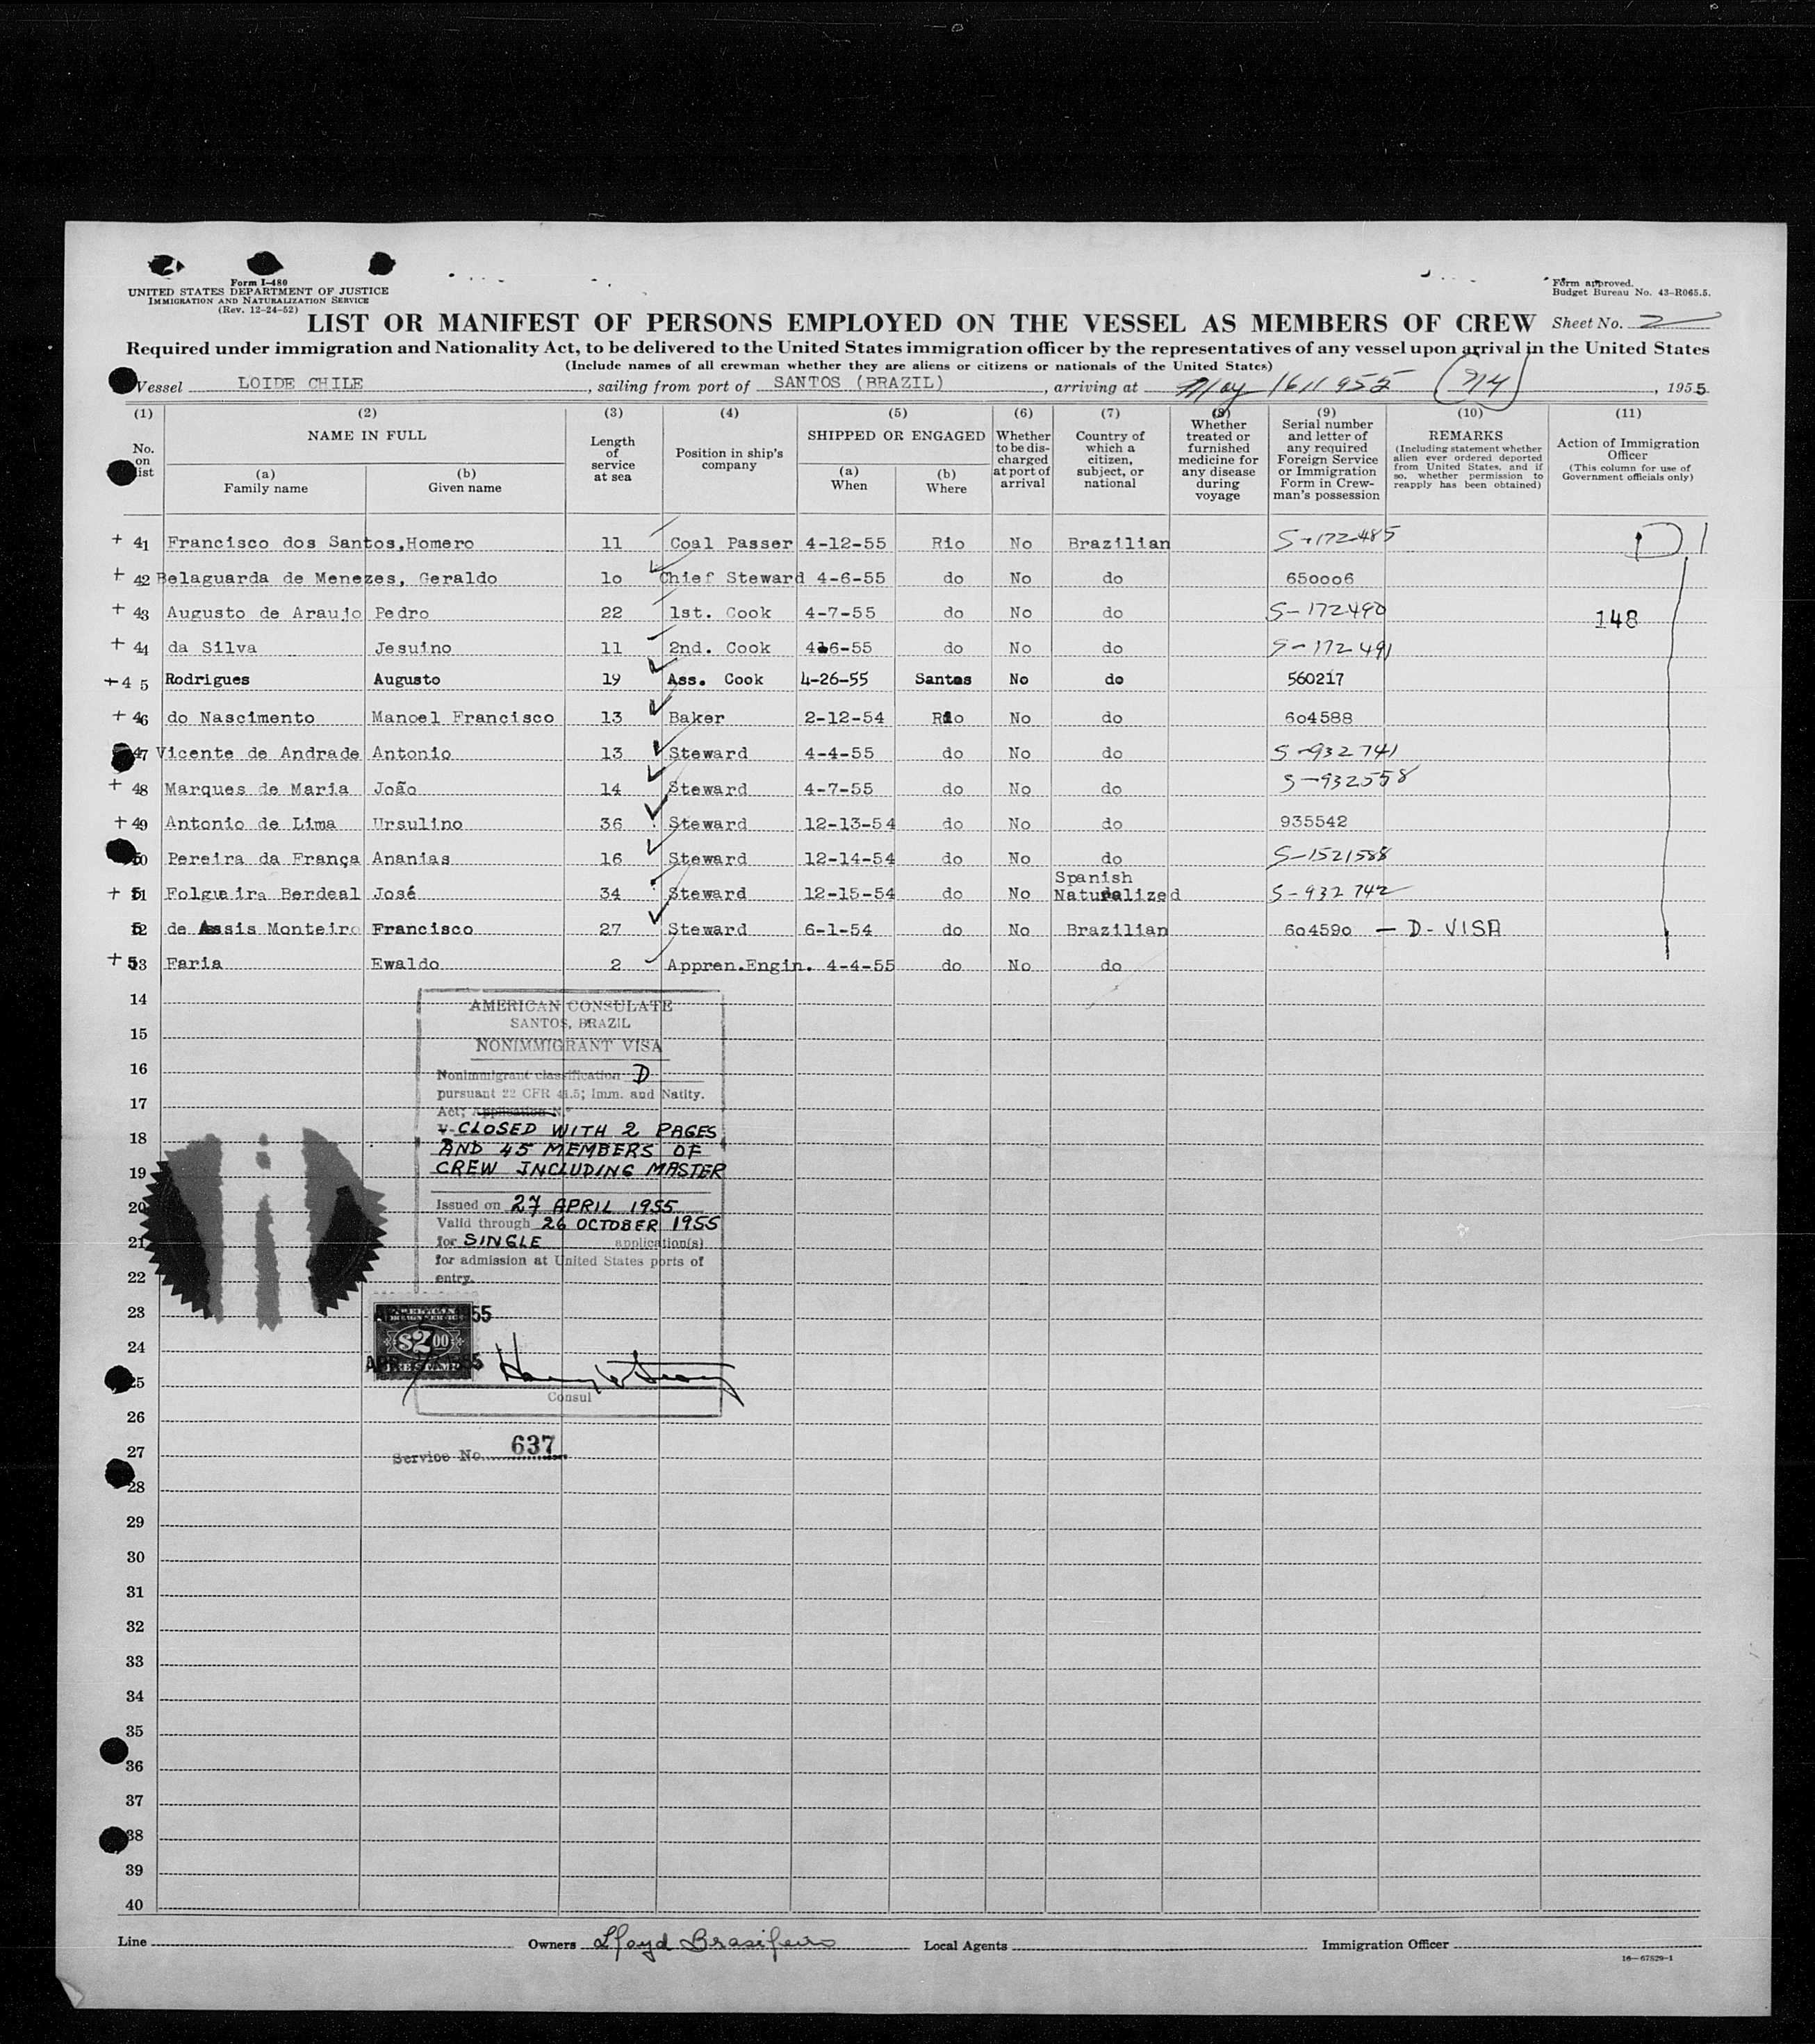 Form I-480
UNITED STATES DEPARTMENT OF JUSTICE
IMMIGRATION AND NATURALIZATION SERVICE
(Rev. 12-24-52)
Form approved.
Budget Bureau No. 43-R065.5.
LIST OR MANIFEST OF PERSONS EMPLOYED ON THE VESSEL AS MEMBERS OF CREW Sheet No. 2
Required under immigration and Nationality Act, to be delivered to the United States immigration officer by the representatives of any vessel upon arrival in the United States
(Include names of all crewman whether they are aliens or citizens or nationals of the United States)
Vessel LOIDE CHILE, sailing from port of SANTOS (BRAZIL), arriving at May 16 1955, 1955
(1) No. on list
(2) NAME IN FULL
(a) Family name
(b) Given name
(3) Length of service at sea
(4) Position in ship's company
(5) SHIPPED OR ENGAGED
(a) When
(b) Where
(6) Whether to be discharged at port of arrival
(7) Country of which a citizen, subject, or national
(8) Whether treated or furnished medicine for any disease during voyage
(9) Serial number and letter of any required Foreign Service or Immigration Form in Crewman's possession
(10) REMARKS (Including statement whether alien ever ordered deported from United States, and if so, whether permission to reapply has been obtained)
(11) Action of Immigration Officer (This column for use of Government officials only)
+ 41 Francisco dos Santos,Homero 11 Coal Passer 4-12-55 Rio No Brazilian S-172485 D1
+ 42 Belaguarda de Menezes, Geraldo 10 Chief Steward 4-6-55 do No do 650006
+ 43 Augusto de Araujo Pedro 22 1st. Cook 4-7-55 do No do S-172490 148
+ 44 da Silva Jesuino 11 2nd. Cook 4-6-55 do No do S-172491
+ 45 Rodrigues Augusto 19 Ass. Cook 4-26-55 Santos No do 560217
+ 46 do Nascimento Manoel Francisco 13 Baker 2-12-54 Rio No do 604588
47 Vicente de Andrade Antonio 13 Steward 4-4-55 do No do S-932741
+ 48 Marques de Maria João 14 Steward 4-7-55 do No do S-932558
+ 49 Antonio de Lima Ursulino 36 Steward 12-13-54 do No do 935542
50 Pereira da França Ananias 16 Steward 12-14-54 do No do S-1521588
+ 51 Folgueira Berdeal José 34 Steward 12-15-54 do No Spanish Naturalized S-932742
52 de Assis Monteiro Francisco 27 Steward 6-1-54 do No Brazilian 604590 — D-VISA
+ 53 Faria Ewaldo 2 Appren.Engin. 4-4-55 do No do
14
AMERICAN CONSULATE
SANTOS, BRAZIL
15
NONIMMIGRANT VISA
16
Nonimmigrant classification D
pursuant 22 CFR 41.5; Imm. and Natlty.
17
Act; Application N.º
V-CLOSED WITH 2 PAGES
18
AND 45 MEMBERS OF
19
CREW INCLUDING MASTER
20
Issued on 27 APRIL 1955
Valid through 26 OCTOBER 1955
21
for SINGLE application(s)
for admission at United States ports of
22
entry.
23
AMERICAN FOREIGN SERVICE
$2.00
FEE STAMP
24
25
Consul
26
27
Service No. 637
28
29
30
31
32
33
34
35
36
37
38
39
40
Line
Owners Lloyd Brasileiro
Local Agents
Immigration Officer
16-67529-1